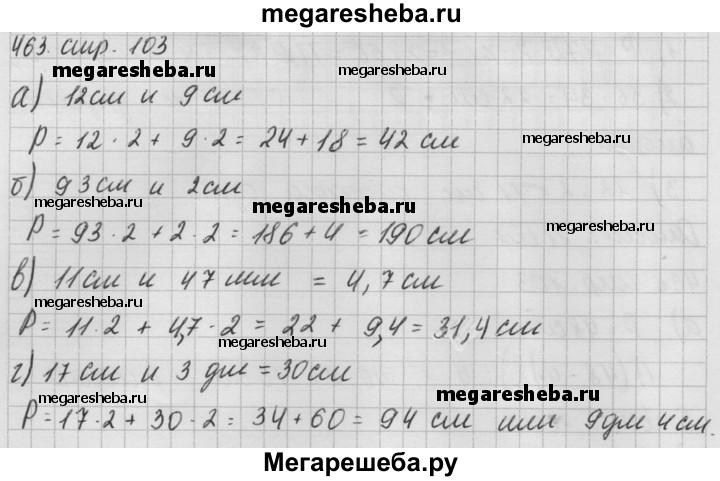 megaresheba.ru
463. стр. 103
megaresheba.ru
megaresheba.ru
а) 12см и 9см
megaresheba.ru
P = 12 · 2 + 9 · 2 = 24 + 18 = 42 см
megaresheba.ru
б) 93см и 2см
megaresheba.ru
megaresheba.ru
P = 93 · 2 + 2 · 2 = 186 + 4 = 190 см
в) 11см и 47 мм = 4,7 см
megaresheba.ru
P = 11 · 2 + 4,7 · 2 = 22 + 9,4 = 31,4 см
megaresheba.ru
г) 17 см и 3 дм = 30см
megaresheba.ru
P = 17 · 2 + 30 · 2 = 34 + 60 = 94 см или 9дм 4см.
Мегарешеба.ру